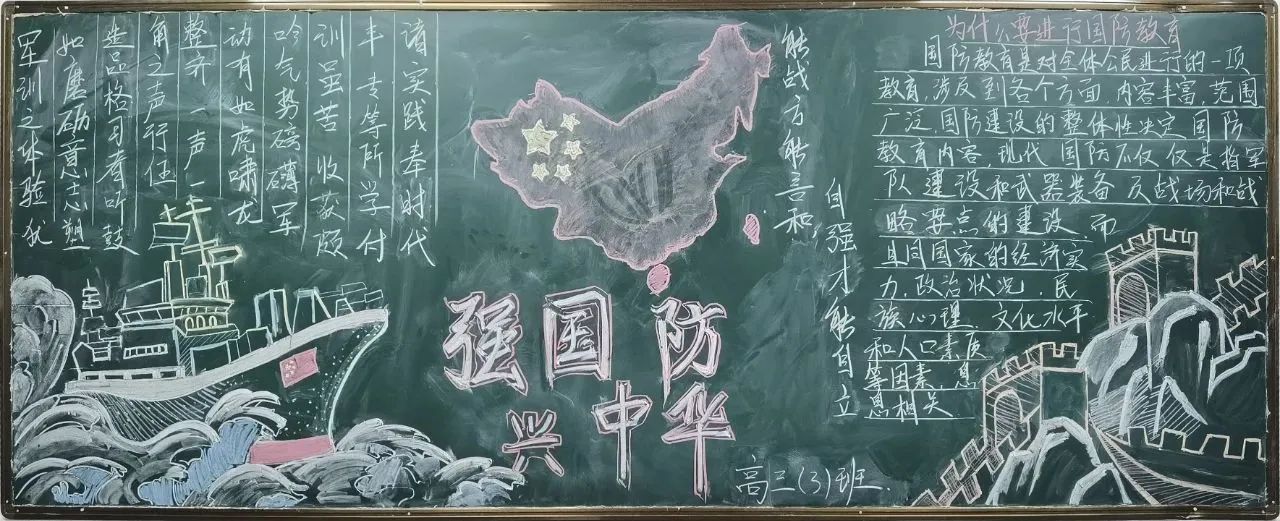 军训之体验犹
如磨砺意志塑
造品格习者听鼓
角之声行伍
整齐 声一
动有如虎啸龙
吟气势磅礴军
训虽苦 收获颇
丰 专等所学付
诸实践奉时代
强国防
兴中华
能战方能言和
自强才能自立
为什么要进行国防教育
国防教育是对全体公民进行的一项
教育,涉及到各个方面,内容丰富,范围
广泛,国防建设的整体性决定国防
教育内容,现代国防不仅仅是指军
队建设和武器装备及战场和战
略要点的建设 而
且同国家的经济实
力,政治状况,民
族心理,文化水平
和人口素质
等因素,息
息相关
高三(3)班